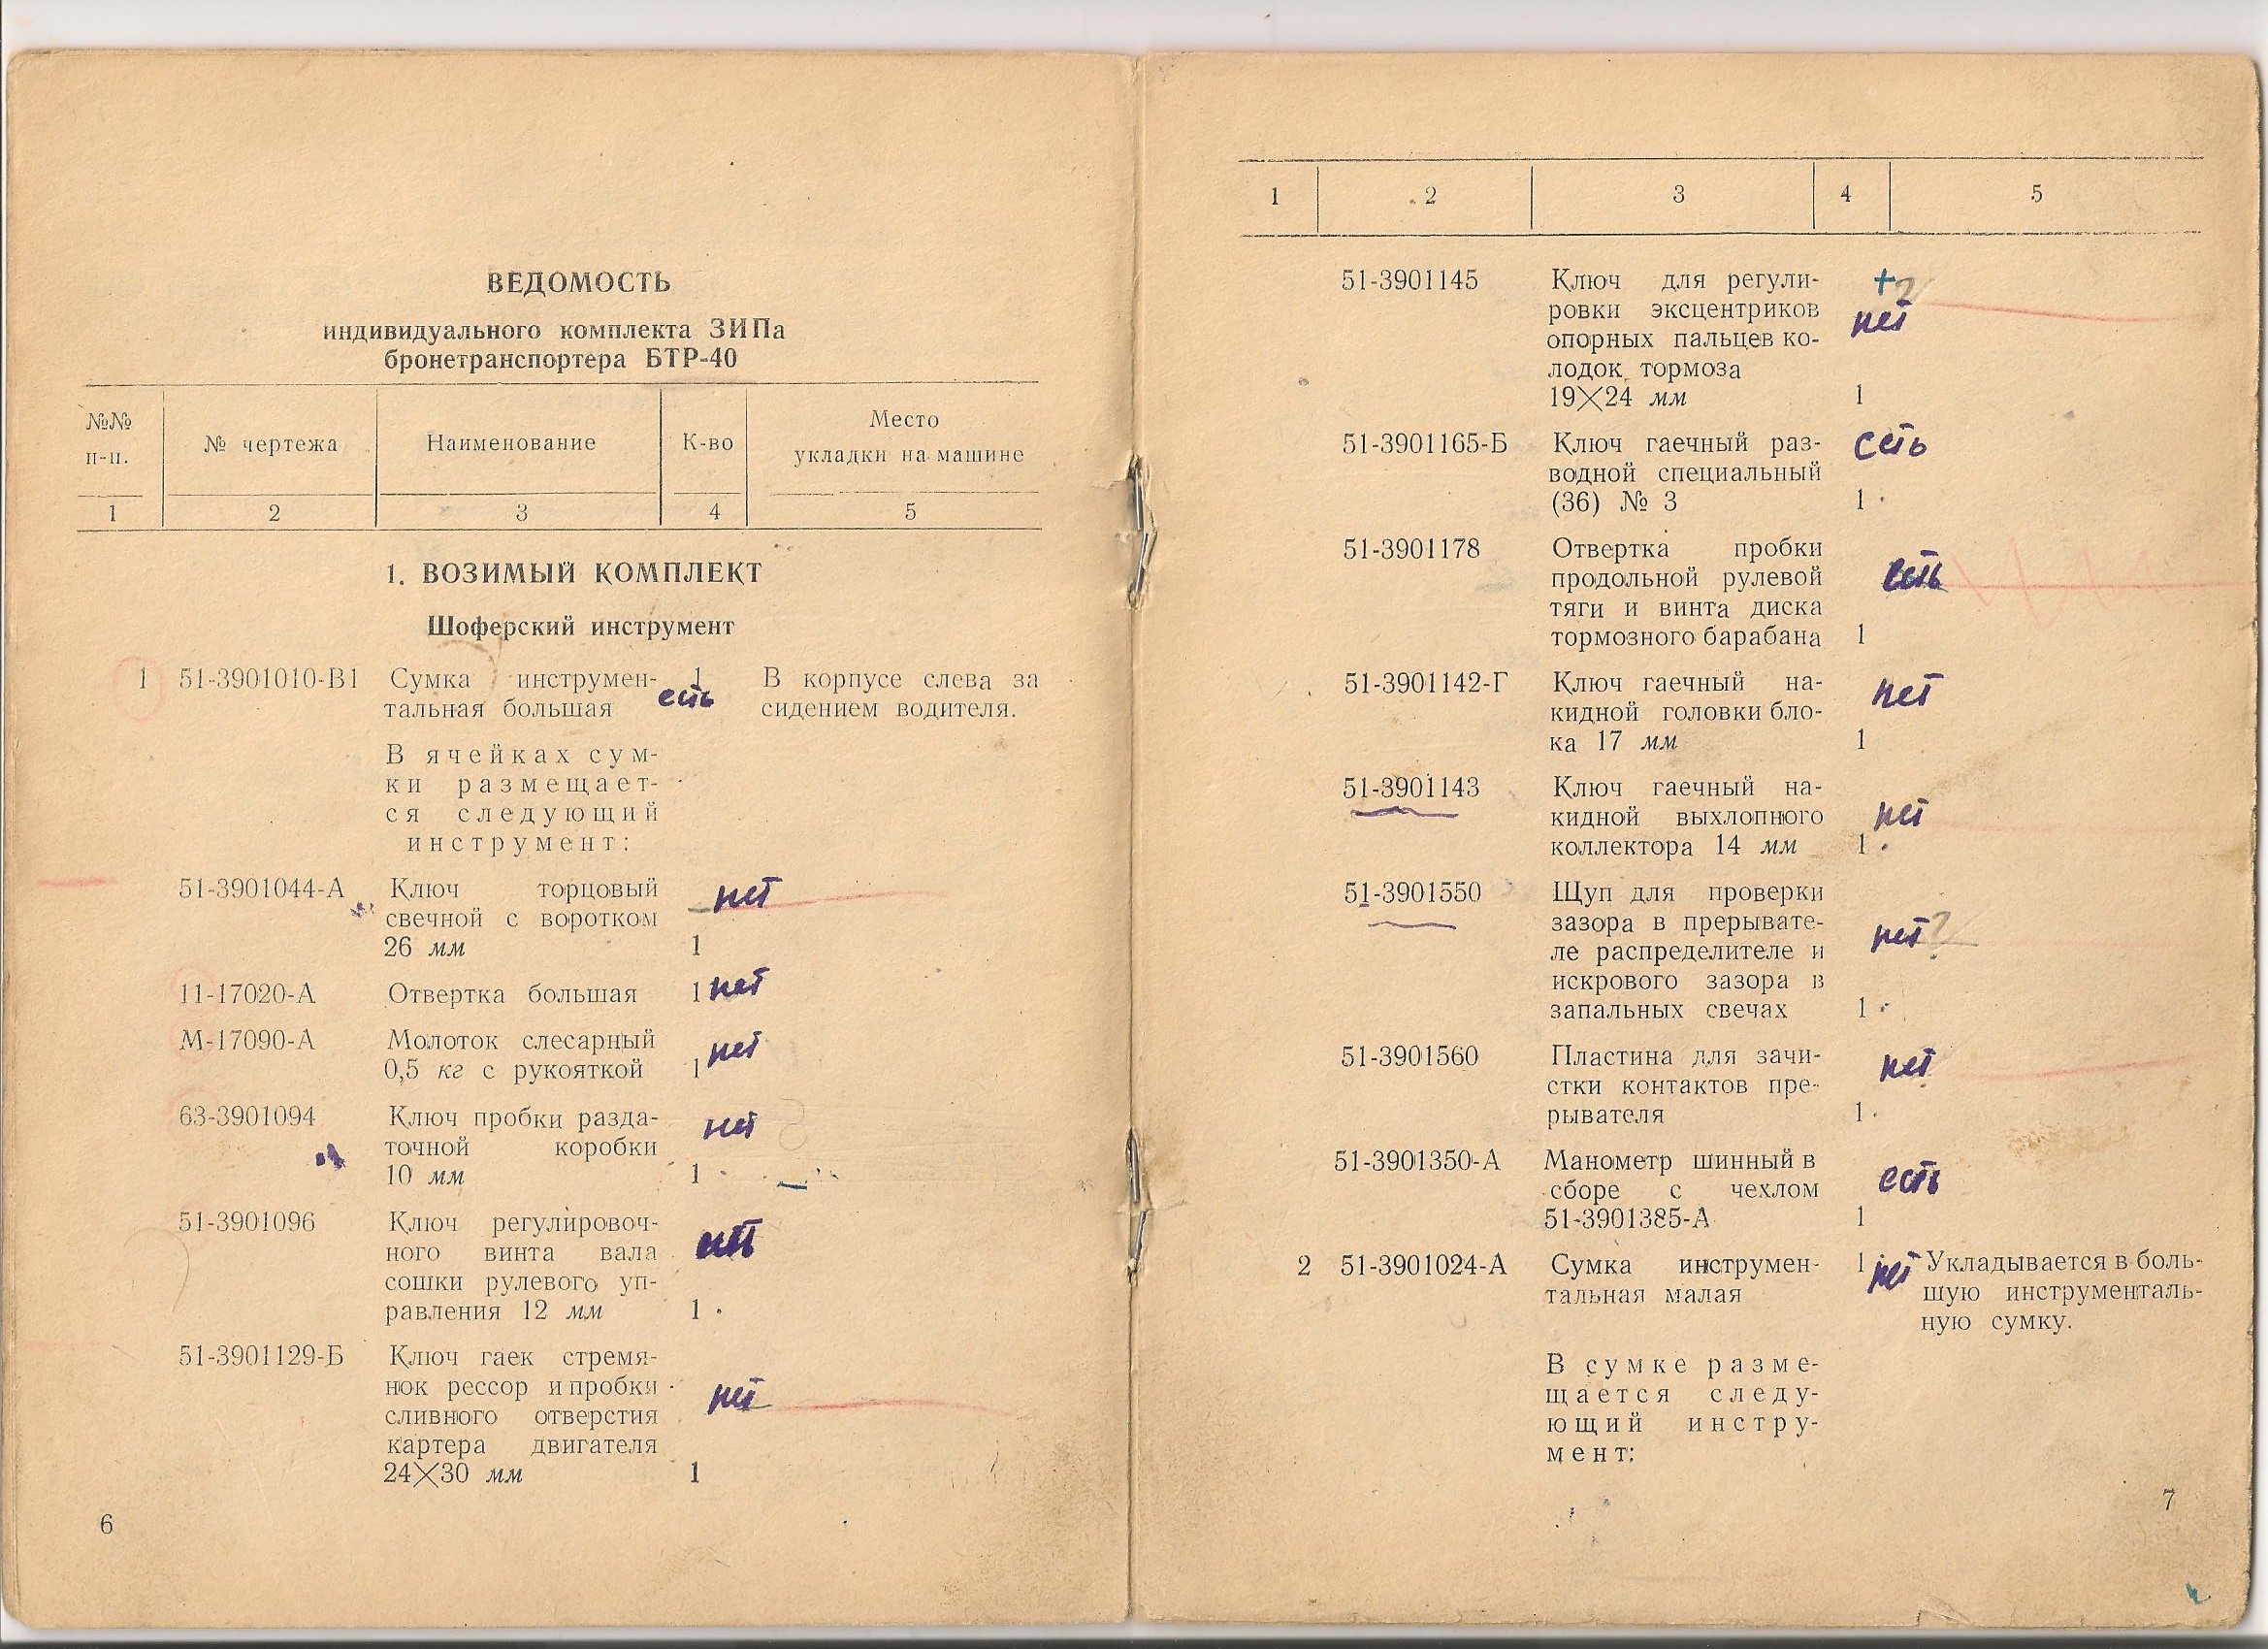 ВЕДОМОСТЬ
индивидуального комплекта ЗИПа
бронетранспортера БТР-40
№№ п-п. № чертежа Наименование К-во Место укладки на машине
1 2 3 4 5
1. ВОЗИМЫЙ КОМПЛЕКТ
Шоферский инструмент
1 51-3901010-В1 Сумка инструмен- 1 В корпусе слева за
тальная большая есть сидением водителя.
В ячейках сум-
ки размещает-
ся следующий
инструмент:
51-3901044-А Ключ торцовый нет
свечной с воротком
26 мм 1
11-17020-А Отвертка большая 1 нет
М-17090-А Молоток слесарный нет
0,5 кг с рукояткой 1
63-3901094 Ключ пробки разда- нет
точной коробки
10 мм 1
51-3901096 Ключ регулировоч-
ного винта вала
сошки рулевого уп-
равления 12 мм 1
51-3901129-Б Ключ гаек стремя-
нок рессор и пробки нет
сливного отверстия
картера двигателя
24×30 мм 1
6
1 2 3 4 5
51-3901145 Ключ для регули- + ?
ровки эксцентриков нет
опорных пальцев ко-
лодок тормоза
19×24 мм 1
51-3901165-Б Ключ гаечный раз- есть
водной специальный
(36) № 3 1
51-3901178 Отвертка пробки
продольной рулевой есть
тяги и винта диска
тормозного барабана 1
51-3901142-Г Ключ гаечный на- нет
кидной головки бло-
ка 17 мм 1
51-3901143 Ключ гаечный на-
кидной выхлопного нет
коллектора 14 мм 1
51-3901550 Щуп для проверки
зазора в прерывате- нет ?
ле распределителе и
искрового зазора в
запальных свечах 1
51-3901560 Пластина для зачи- нет
стки контактов пре-
рывателя 1
51-3901350-А Манометр шинный в
сборе с чехлом есть
51-3901385-А 1
2 51-3901024-А Сумка инструмен- 1 нет Укладывается в боль-
тальная малая шую инструменталь-
ную сумку.
В сумке разме-
щается следу-
ющий инстру-
мент:
7